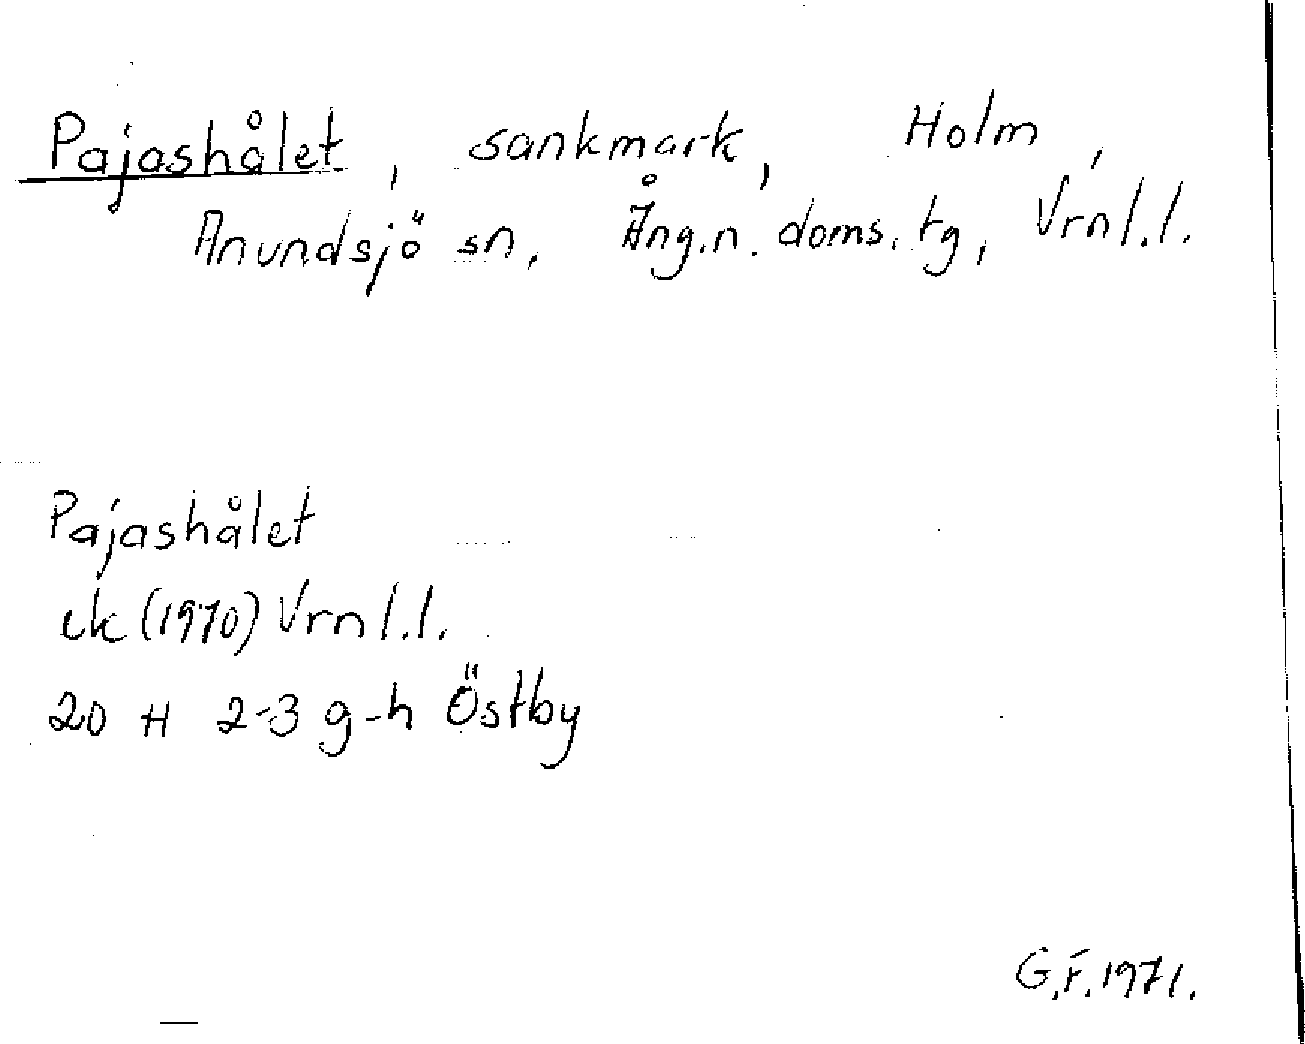 Pajashålet, sankmark, Holm,
Anundsjö sn. Ång.n. doms. tg, Vrnl.l.
Pajashålet
ek (1970) Vrnl.l.
20 H 2-3 g-h Östby
G.F. 1971.